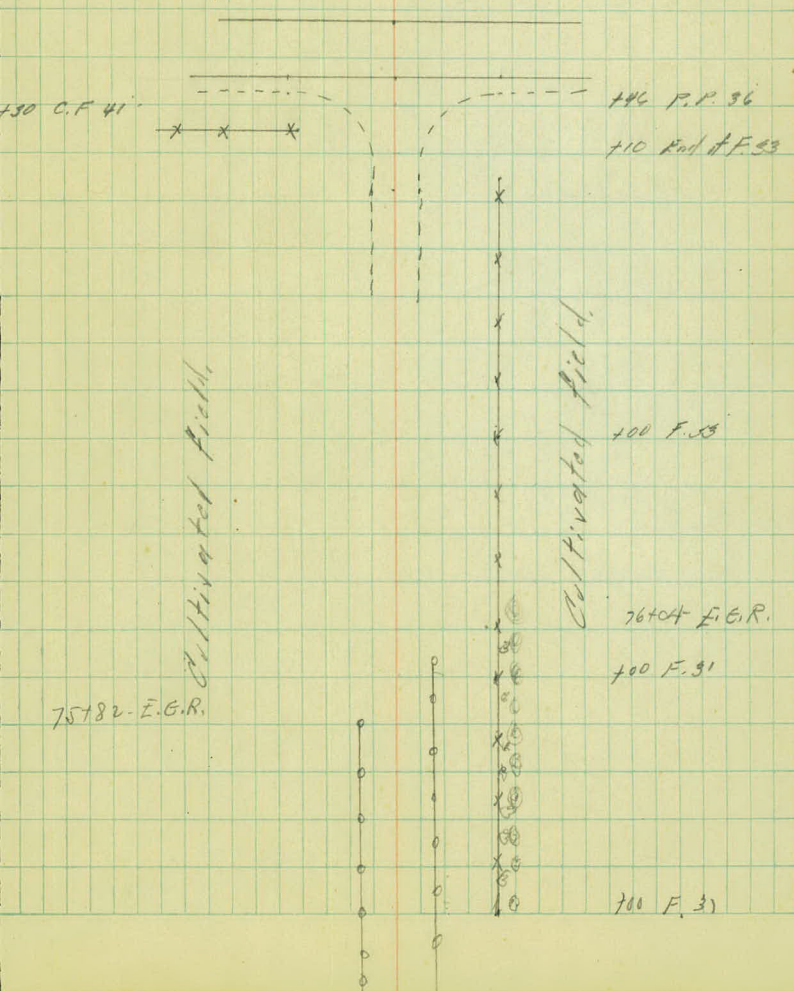 +30 C.F 41
+46 P.P. 36
+10 End of F. 33
Cultivated Field.
Cultivated Field.
+00 F. 33
76+04 E.G.R.
+00 F. 31
75+82 - E.G.R.
+00 F. 31